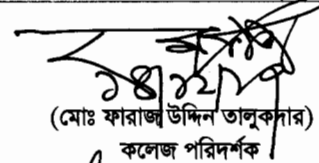 (মোঃ ফারাজ উদ্দিন তালুকদার)
কলেজ পরিদর্শক